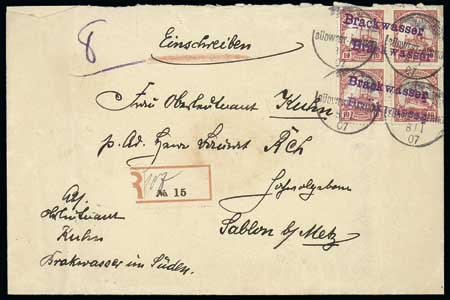 8
Einschreiben
Brackwasser
Brackwasser
Brackwasser
Brackwasser
8/1
07
07
Frau Oberleutnant Kuhn
p. Ad. Herrn
R № 15
Hochwohlgeboren
Sablon b/Metz
Abs.
Oberleutnant
Kuhn
Brakwasser im Süden.